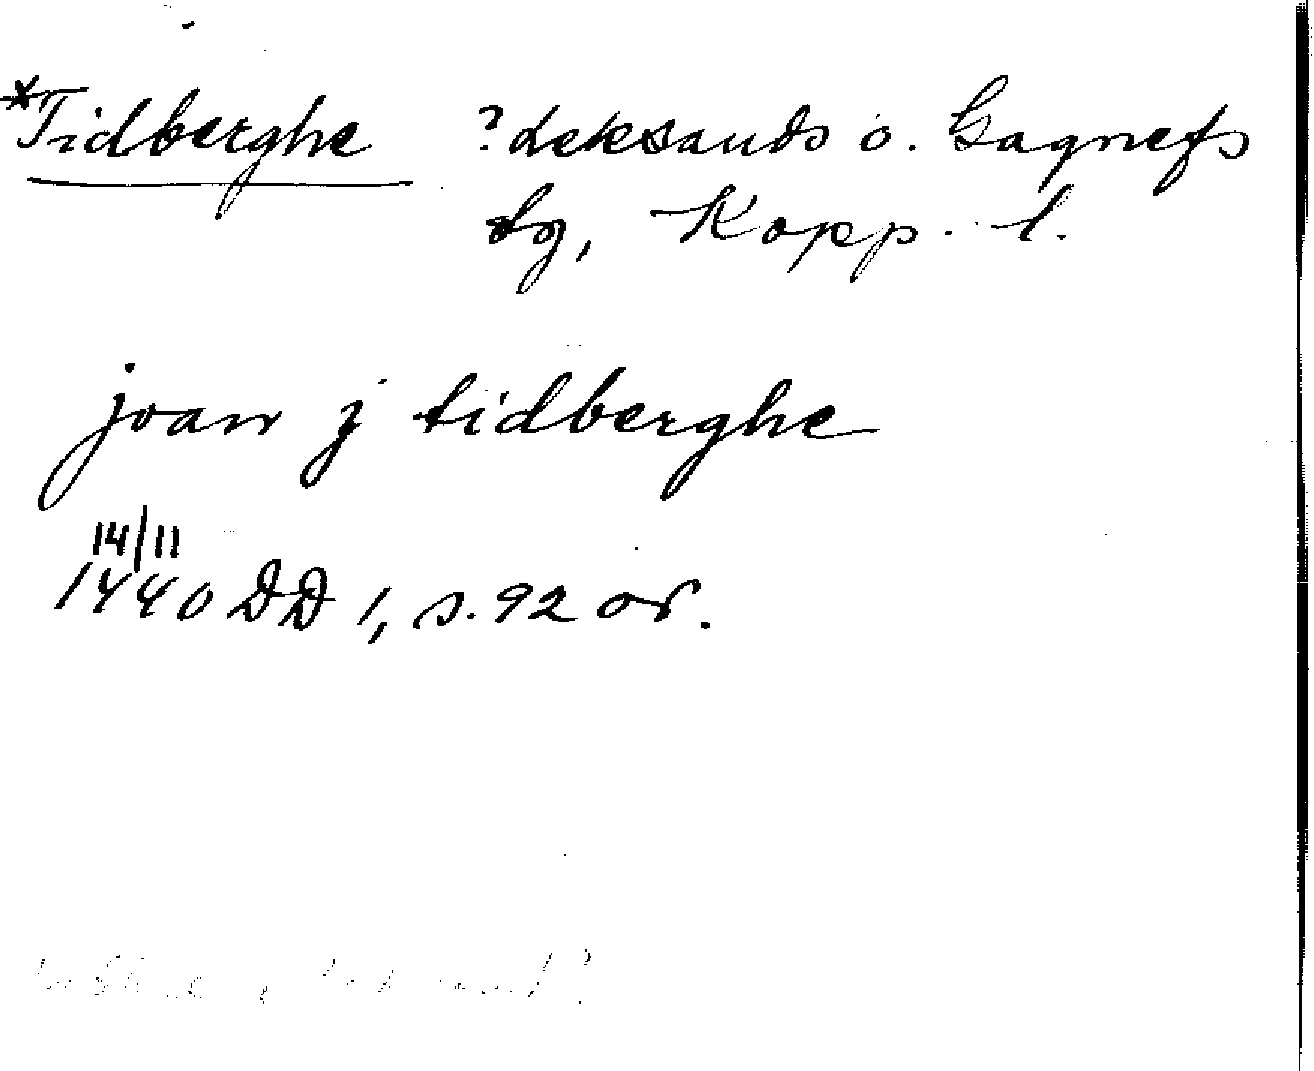 *Tidberghe ?Leksands o. Gagnefs
tg, Kopp. l.
joan j tidberghe
14/11
1440 DD 1, s. 92 or.